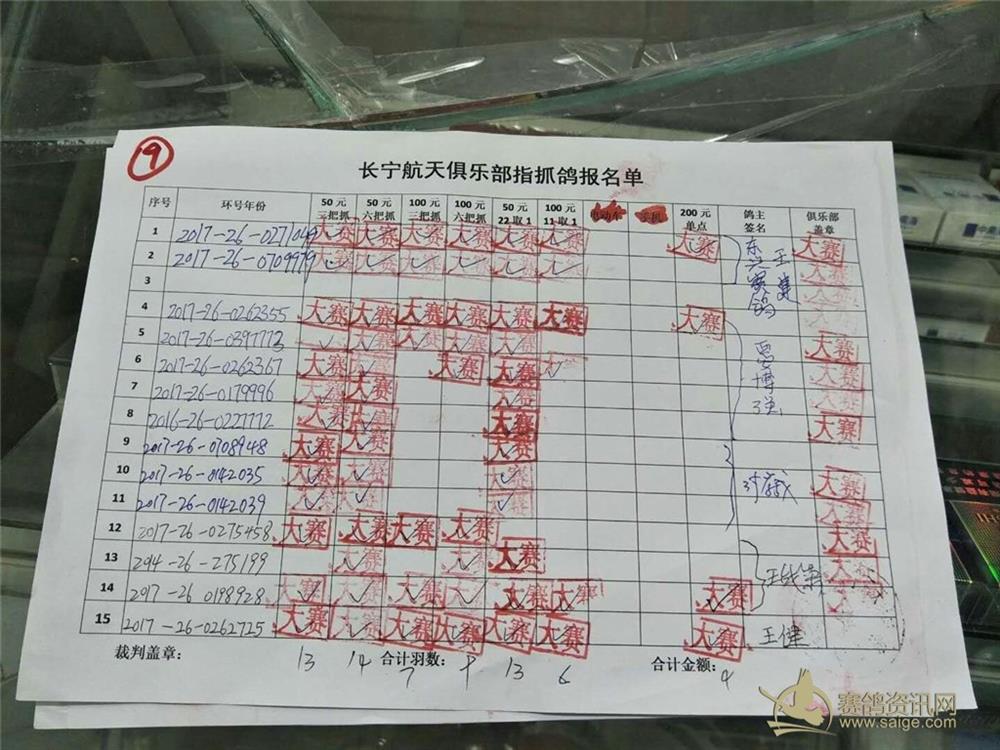 9
长宁航天俱乐部指抓鸽报名单
序号 环号年份 50元三把抓 50元六把抓 100元三把抓 100元六把抓 50元22取1 100元11取1 电动车 200元单点 鸽主签名 俱乐部盖章
1 2017-26-0271044 大赛 大赛 大赛 大赛 大赛 大赛 大赛 东兴赛鸽 王 大赛
2 2017-26-0709979 大赛 大赛 大赛 大赛 大赛 大赛 大赛
3
4 2017-26-0262355 大赛 大赛 大赛 大赛 大赛 大赛 大赛
5 2017-26-0397773 大赛 大赛 大赛 大赛 大赛 大赛
6 2017-26-0262367 大赛 大赛 大赛 大赛 博强 大赛
7 2017-26-0179996 大赛 大赛 大赛 大赛
8 2016-26-0227772 大赛 大赛 大赛 大赛
9 2017-26-0708948 大赛 大赛 大赛
10 2017-26-0142035 大赛 大赛 大赛 大赛
11 2017-26-0142039 大赛 大赛 大赛 大赛
12 2017-26-0275458 大赛 大赛 大赛 大赛 大赛
13 -26-275199 大赛 大赛 大赛 大赛
14 2017-26 0198928 大赛 大赛 大赛 大赛 大赛 大赛 大赛
15 2017-26-0262725 大赛 大赛 大赛 大赛 大赛 大赛 大赛 王健
裁判盖章: 合计羽数: 合计金额:
13 14 7 9 13 6 4
赛鸽资讯网
www.saige.com